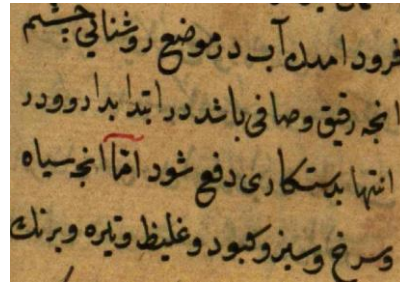 فرود امدن آب در موضع روشنائی چشم
انچه رقیق و صافی باشد در ابتدا بدارو و در
انتها بدستکاری دفع شود اما انچه سیاه
و سرخ و سبز و کبود و غلیظ و تیره و برنک